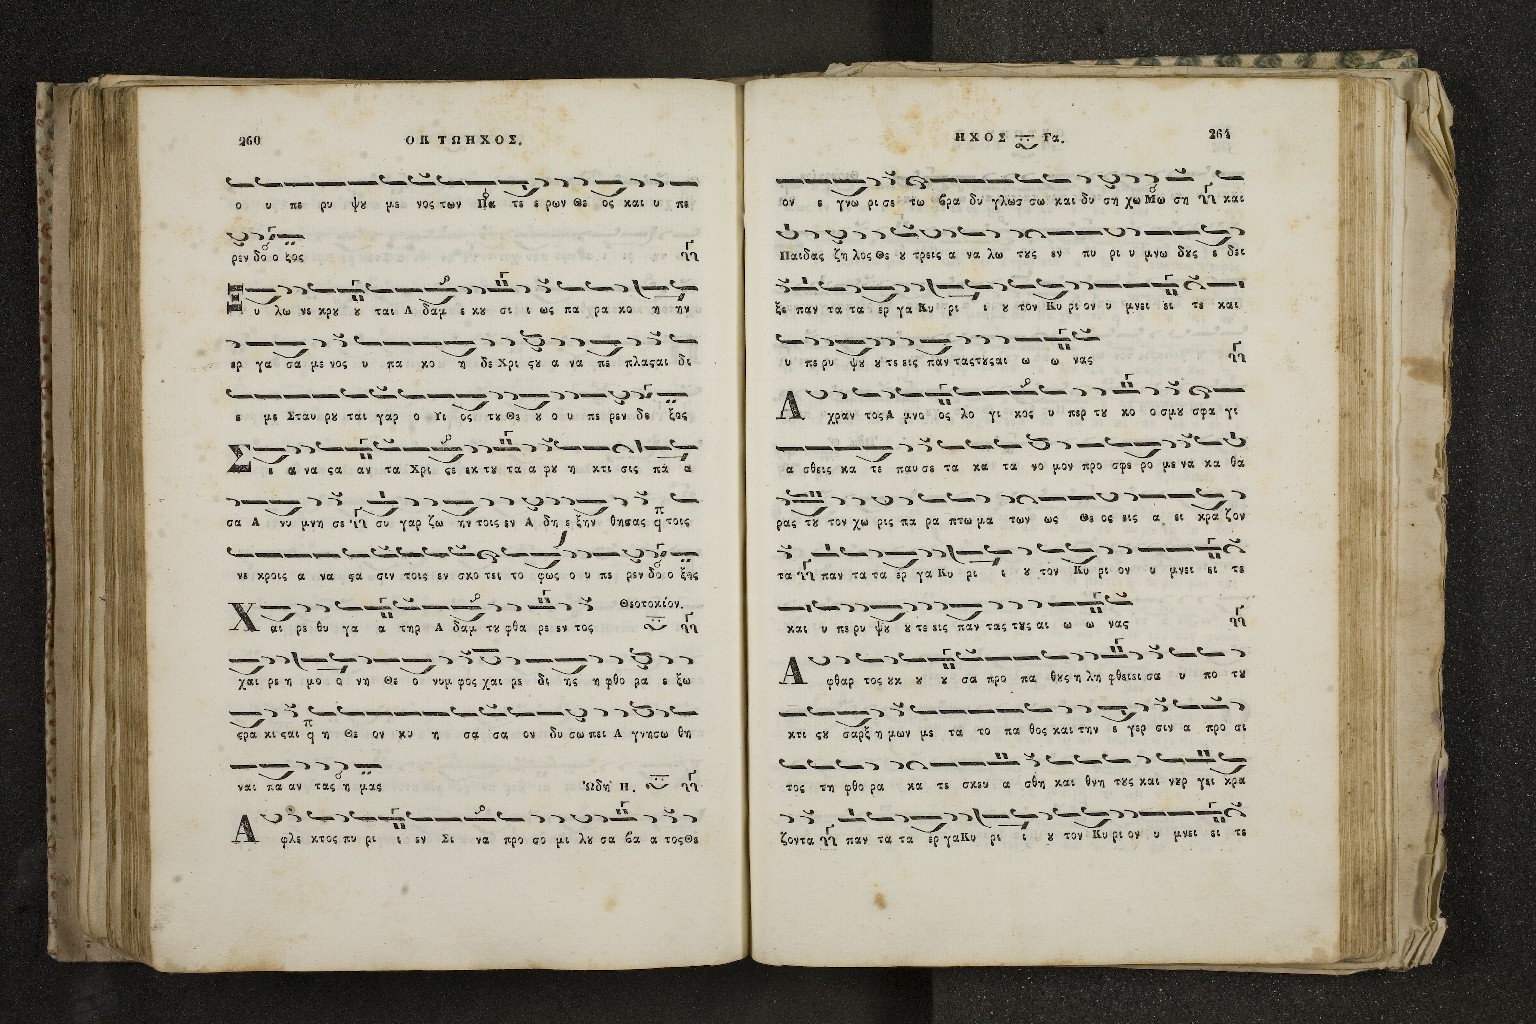 260 ΟΚΤΩΗΧΟΣ.
ο υ πε ρυ ψȣ με νος των Πα τε ε ρων Θε ος και υ πε
ρεν δο ο ξος
Ξ υ λω νε κρȣ ȣ ται Α δαμ ε κȣ σι ι ως πα ρα κο η ην
ερ γα σα με νος υ πα κο η δε Χρι ςȣ α να πε πλαςαι δι
ε με Σταυ ρȣ ται γαρ ο Υι ος τȣ Θε ȣ ο υ πε ρεν δο ξος
Σ ε α να ςα αν τα Χρι ςε εκ τȣ τα α φȣ η κτι σις πα α
σα Α νυ μνη σε συ γαρ ζω ην τοις εν Α δη ε ξην θησας τοις
νε κροις α να ςα σιν τοις εν σκο τει το φως ο υ πε ρεν δο ο ξος
Θεοτοκίον.
Χ αι ρε θυ γα α τηρ Α δαμ τȣ φθα ρε εν τος
χαι ρε η μο ο νη Θε ο νυμ φος χαι ρε δι ης η φθο ρα ε ξω
ςρα κι ςαι η Θε ον κυ η σα σα ον δυ σω πει Α γνη σω θη
ναι πα αν τας η μας Ὠδὴ Η.
Α φλε κτος πυ ρι ι εν Σι να προ σο μι λȣ σα βα α τος Θε
ΗΧΟΣ Γα. 261
ον ε γνω ρι σε τω βρα δυ γλωσ σω και δυ ση χω Μω ση και
Παιδας ζη λος Θε ȣ τρεις α να λω τȣς εν πυ ρι υ μνω δȣς ε δει
ξε παν τα τα ερ γα Κυ ρι ι ȣ τον Κυ ρι ον υ μνει ει τε και
υ πε ρυ ψȣ ȣ τε εις παν τας τȣς αι ω ω νας
Α χραν τος Α μνο ος λο γι κος υ περ τȣ κο ο σμȣ σφα γι
α σθεις κα τε παυ σε τα κα τα νο μον προ σφε ρο με να κα θα
ρας τȣ τον χω ρις πα ρα πτω μα των ως Θε ος εις α ει κρα ζον
τα παν τα τα ερ γα Κυ ρι ι ȣ τον Κυ ρι ον υ μνει ει τε
και υ πε ρυ ψȣ ȣ τε εις παν τας τȣς αι ω ω νας
Α φθαρ τος ȣκ ȣ ȣ σα προ πα θȣς η λη φθεισι σα υ πο τȣ
κτι ςȣ σαρξ η μων με τα το πα θος και την ε γερ σιν α προ σι
τος τη φθο ρα κα τε σκευ α σθη και θνη τȣς και νȣρ γει κρα
ζοντα παν τα τα ερ γα Κυ ρι ι ȣ τον Κυ ρι ον υ μνει ει τε